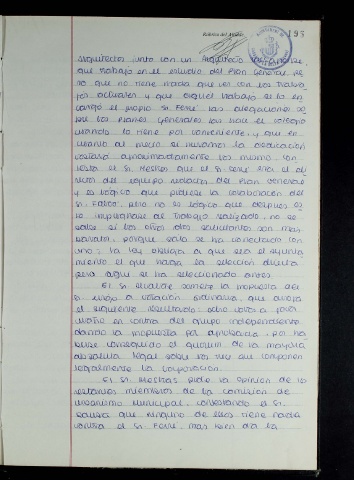 Rúbrica del Alcalde
193
arquitecto junto con un Arquitecto
que trabajó en el estudio del Plan General, pe
ro que no tiene nada que ver con los trabajos
actuales y que aquel trabajo se lo en
cargó el propio Sr. Ferré las alegaciones so
bre los Planes Generales los hace el Colegio
cuando lo tiene por conveniente, y que en
cuanto al precio si hacemos la dedicación
costaría aproximadamente los mismo, con
testa el Sr. Mestres que el Sr. Ferré era el di
rector del equipo redactor del Plan General
y es lógico que pidiera la colaboración del
Sr. pero no es lógico que después es
te impugnase el trabajo realizado, no se
sabe si los otros dos solicitantes son mas
baratos, porque solo se ha conectado con
uno; la ley obliga a que sea el Ayunta
miento el que haga la selección directa
pero aquí se ha seleccionado antes.
El Sr. Alcalde somete la propuesta del
Sr. a votación ordinaria, que arroja
el siguiente resultado: ocho votos a favor
cuatro en contra del grupo independiente
dando la propuesta por aprobada, por ha
berse conseguido el quorum de la mayoría
absoluta legal sobre los que componen
legalmente la Corporación.
El Sr. Mestres pide la opinión de los
restantes miembros de la Comisión de
Urbanismo Municipal, contestando el Sr.
que ninguno de ellos tiene nada
contra el Sr. Ferré, mas bien dia la